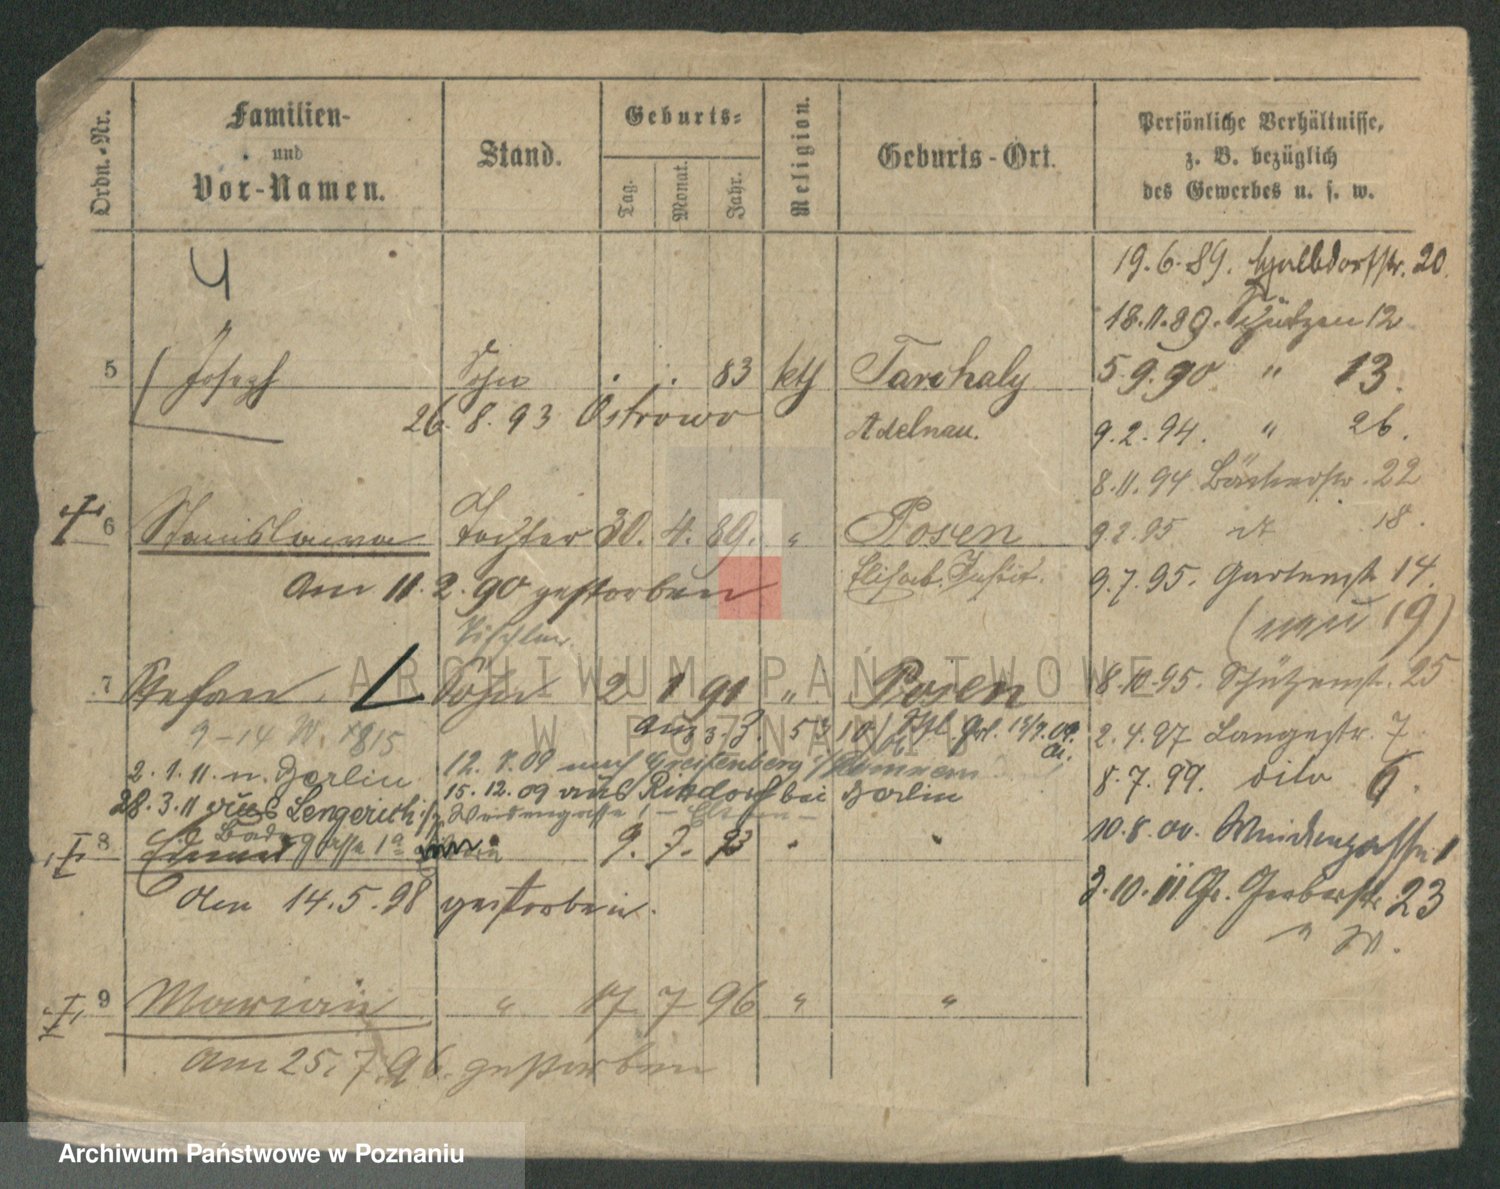 Ordn.-Nr.
Familien-
und
Vor-Namen.
Stand.
Geburts-
Tag.
Monat.
Jahr.
Religion.
Geburts-Ort.
Persönliche Verhältnisse,
z. B. bezüglich
des Gewerbes u. s. w.
4
19.6.89. Halbdorfstr. 20.
18.11.89. Schützen 12
5 Joseph Sohn . . 83 kth Tarchaly
5.9.90 " 13.
26.8.93 Ostrowo
Adelnau.
9.2.94. " 26.
8.11.94 Bäckerstr. 22
6 Stanislawa Tochter 30. 4. 89. " Posen
9.2.95 18.
Am 11.2.90 gestorben
Elisab.
9.7.95. Gartenstr. 14.
(neu 19)
Tischler
7 Stefan. Sohn 2 1 91 " Posen
8.10.95. Schützenstr. 25
9-14
2.4.97 Langestr. 7
2.1.11. n. Berlin
12.7.09 nach Greifenberg i/Pommern
8.7.99. dito 6.
28.3.11 aus Lengerich i/
15.12.09 aus Rixdorf bei Berlin
Weidengasse 1
Badegasse 1a
10.8.00. Weidengasse 1
8 Edmund 9. 7. 93 " "
den 14.5.98 gestorben.
3.10.11 Gr. Gerberstr. 23
9 Marian " 17 7 96 " "
Am 25.7.96. gestorben
ARCHIWUM PAŃSTWOWE
W POZNANIU
Archiwum Państwowe w Poznaniu